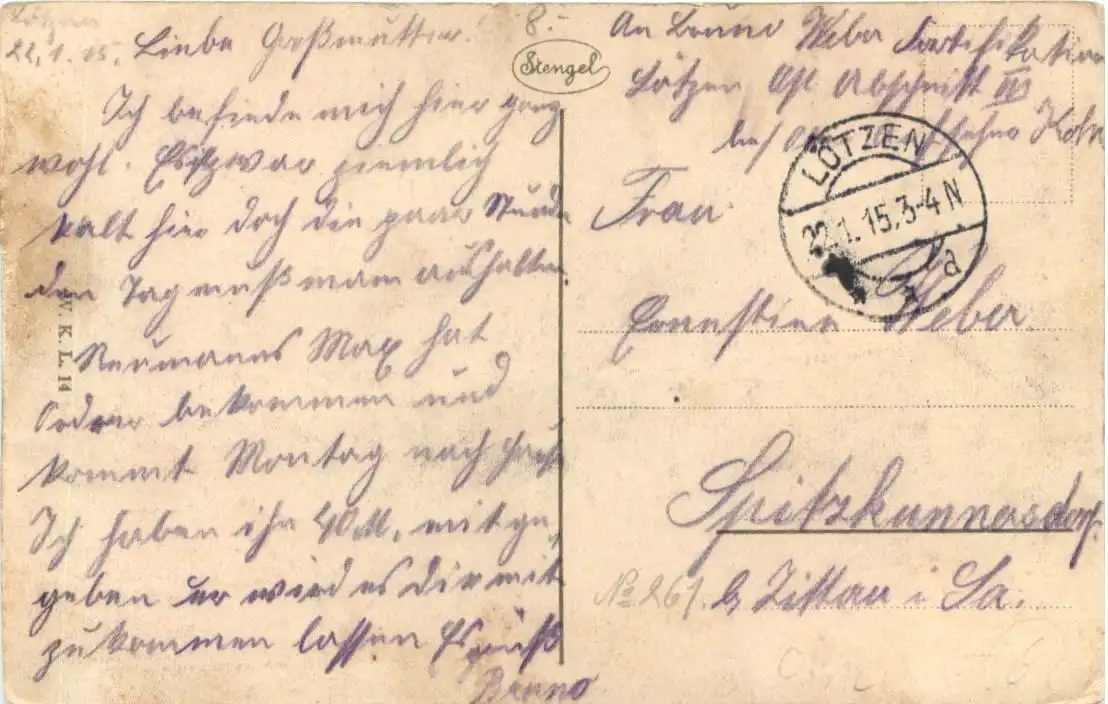 Lötzen
22.1.15. Liebe Großmutter!
Ich befinde mich hier ganz
wohl. Es ist zwar ziemlich
kalt hier doch die paar Stunde
den Tag muß man aushalten
Neumanns Max hat
Order bekommen und
kommt Montag nach Haus
Ich haben ihn 40 M. mitge-
geben er wird es Dir mit
zukommen lassen Es grüßt
Bruno
8.-
Stengel
W. K. L. 14
An Bruno Weber Fortifikation
Lötzen Abschnitt III
Köln
LÖTZEN
22.1.15.3-4N
a
Frau
Ernestine Weber
Spitzkunnersdorf
№ 261. b Zittau i Sa.